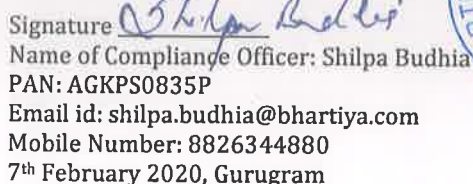 Signature Shilpa Budhia
Name of Compliance Officer: Shilpa Budhia
PAN: AGKPS0835P
Email id: shilpa.budhia@bhartiya.com
Mobile Number: 8826344880
7th February 2020, Gurugram